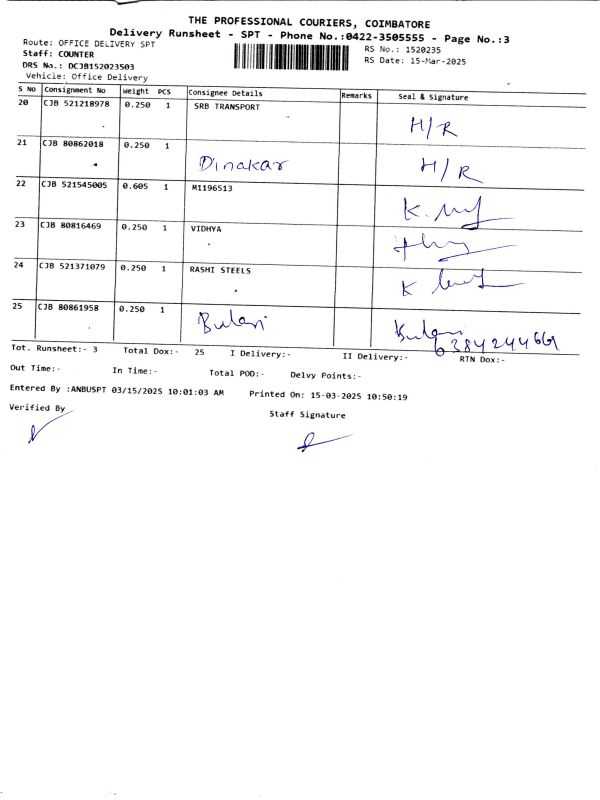 THE PROFESSIONAL COURIERS, COIMBATORE
Delivery Runsheet - SPT - Phone No.:0422-3505555 - Page No.:3
Route: OFFICE DELIVERY SPT RS No.: 1520235
Staff: COUNTER RS Date: 15-Mar-2025
DRS No.: DCJB152023503
Vehicle: Office Delivery
S No Consignment No Weight PCS Consignee Details Remarks Seal & Signature
20 CJB 521218978 0.250 1 SRB TRANSPORT H/R
21 CJB 80862018 0.250 1 Dinakar H/R
22 CJB 521545005 0.605 1 M1196513 K.
23 CJB 80816469 0.250 1 VIDHYA
24 CJB 521371079 0.250 1 RASHI STEELS K
25 CJB 80861958 0.250 1
Tot. Runsheet:- 3 Total Dox:- 25 I Delivery:- II Delivery:- RTN Dox:-
Out Time:- In Time:- Total POD:- Delvy Points:-
Entered By :ANBUSPT 03/15/2025 10:01:03 AM Printed On: 15-03-2025 10:50:19
Verified By Staff Signature